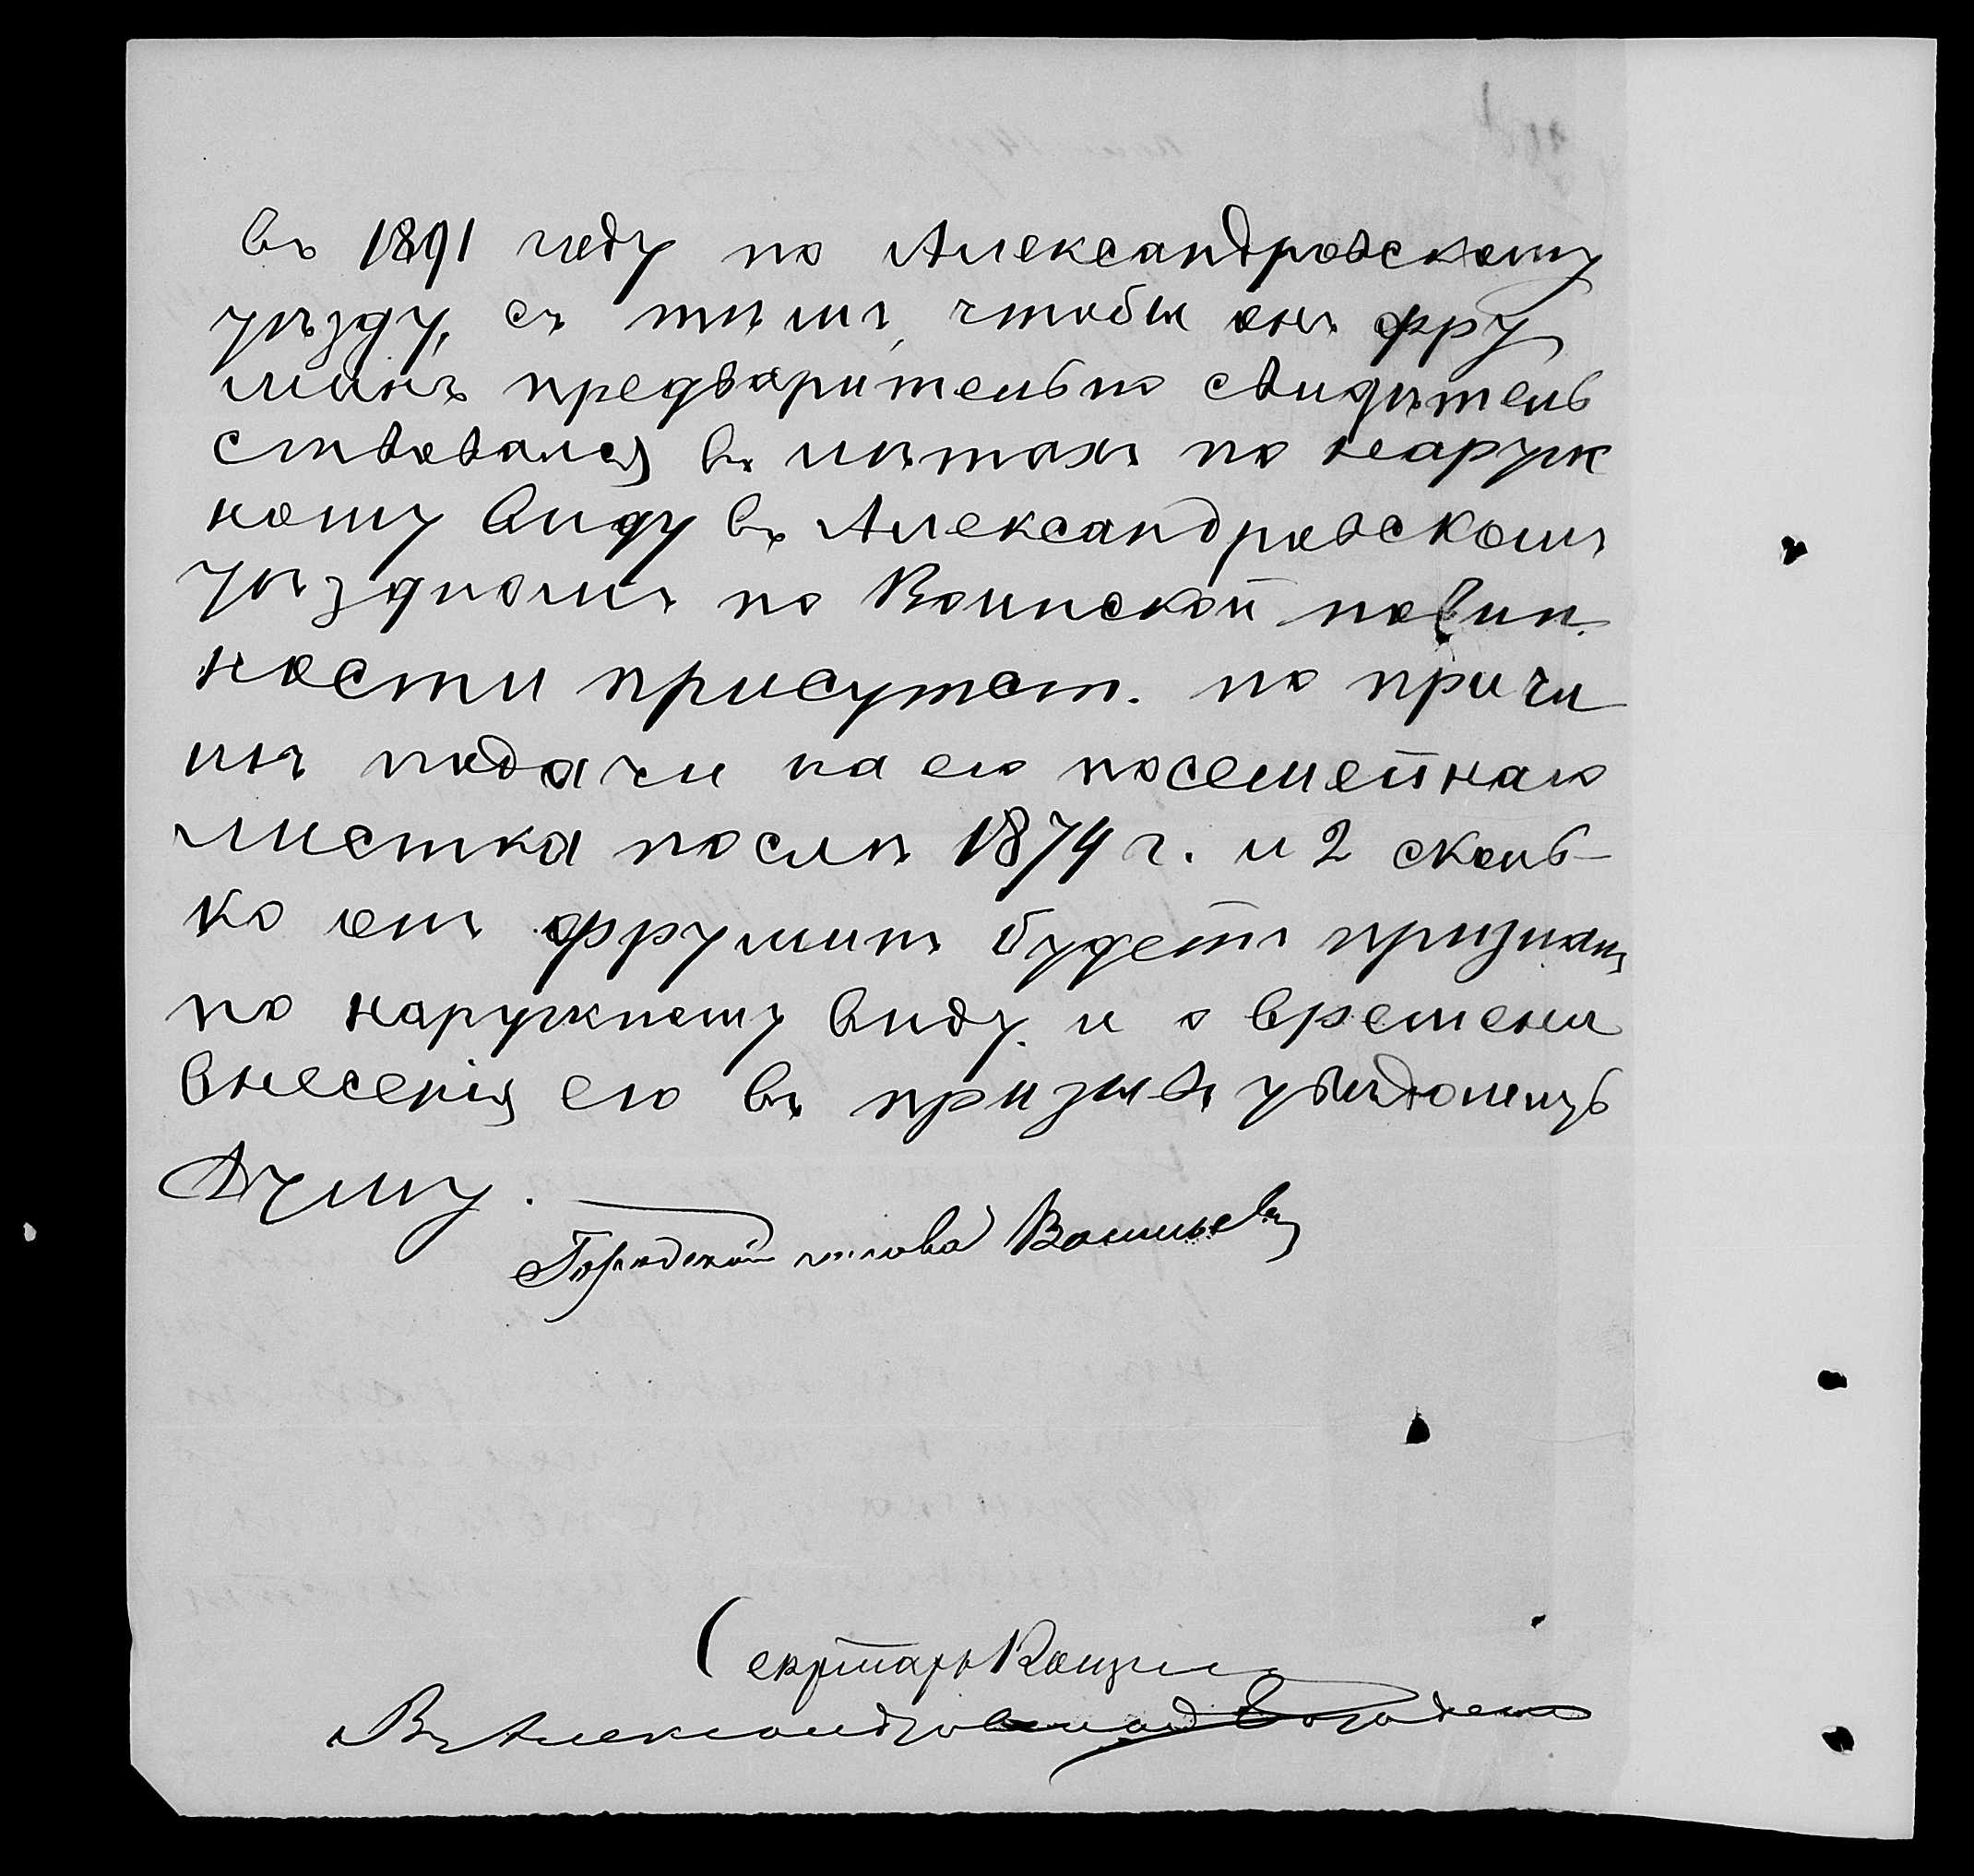 въ 1891 году по Александровскому
уѣзду, съ тѣмъ, чтобы онъ Фру
минъ предварительно свидѣтель
ствовался въ лѣтахъ по наруж
ному виду въ Александровскомъ
уѣздномъ по Воинской повин.
ности присутст. по причи
нѣ подачи на его посемейнаго
листка послѣ 1874 г. и 2 сколь-
ко онъ Фруминъ будетъ признанъ
по наружному виду. и о времени
внесенія его въ призывъ увѣдомить
Думу.
Городской голова Васильевъ
Секретарь
Въ Александровскую Городскую